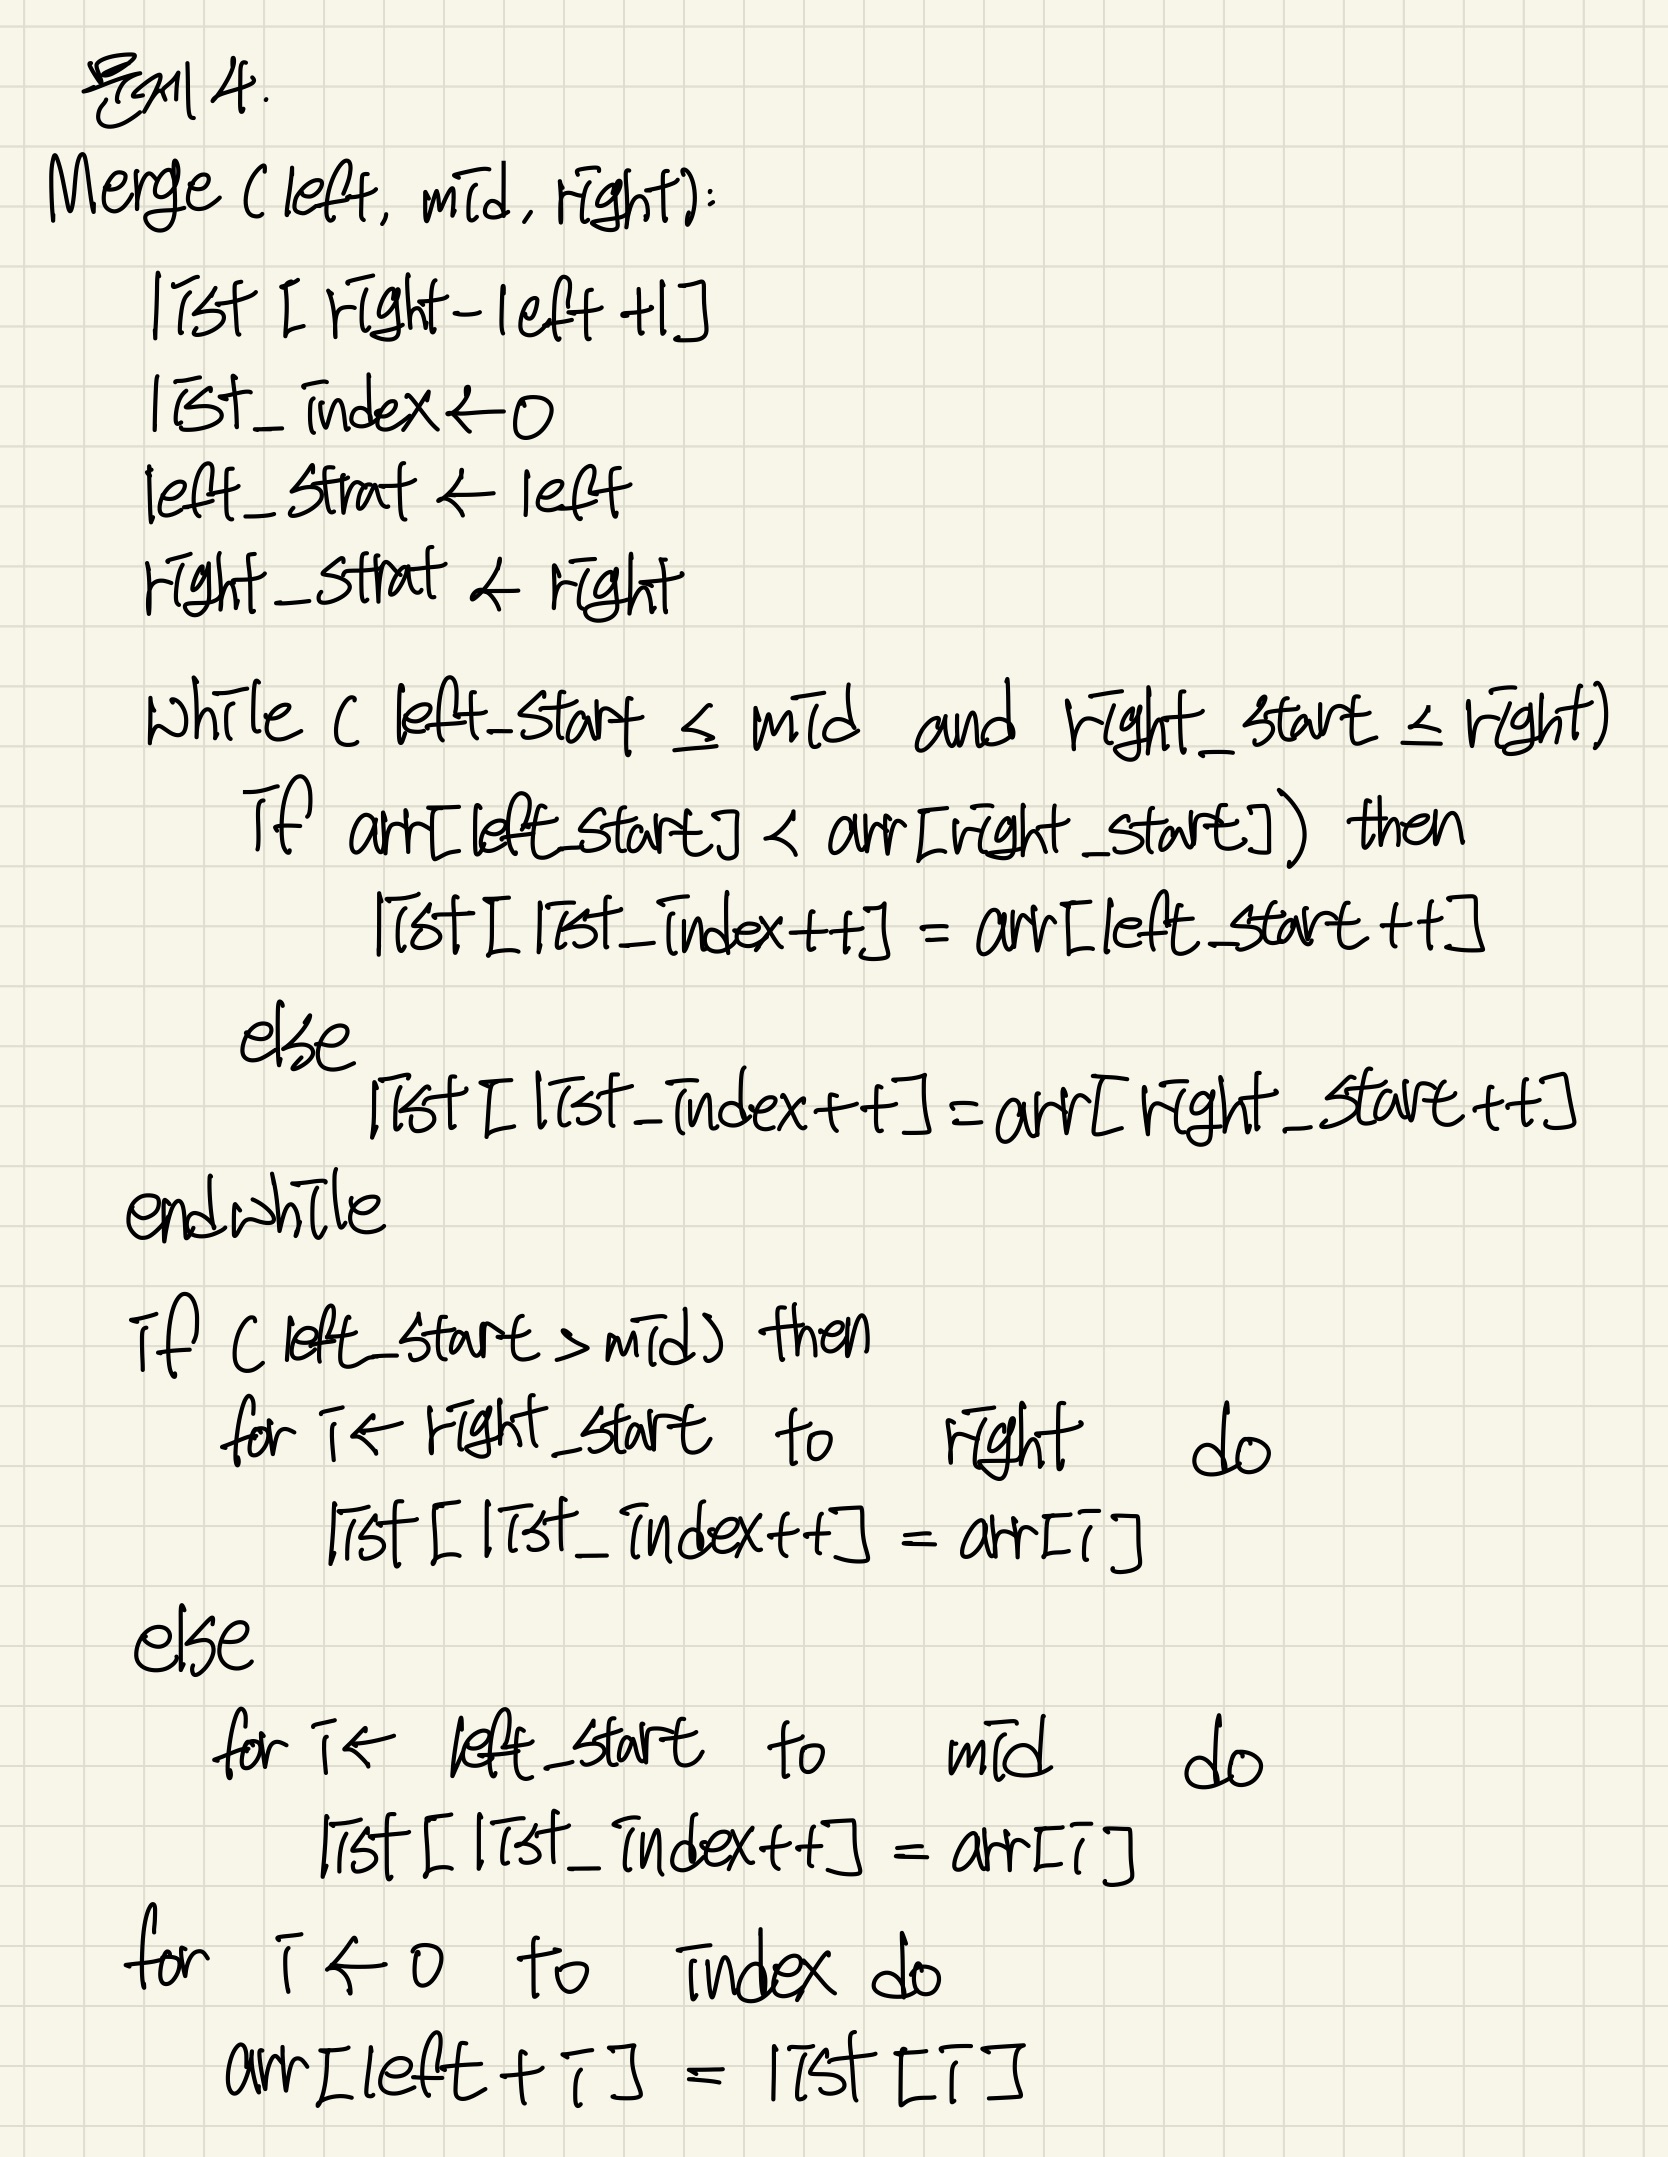 문제 4.
Merge (left, mid, right):
list [right-left+1]
list_index←0
left_strat ← left
right_strat ← right
while (left_start ≤ mid and right_start ≤ right)
if arr[left_start] < arr[right_start]) then
list[list_index++] = arr[left_start++]
else
list[list_index++] = arr[right_start++]
endwhile
if (left_start > mid) then
for i← right_start to right do
list[list_index++] = arr[i]
else
for i← left_start to mid do
list[list_index++] = arr[i]
for i ← 0 to index do
arr[left+i] = list[i]